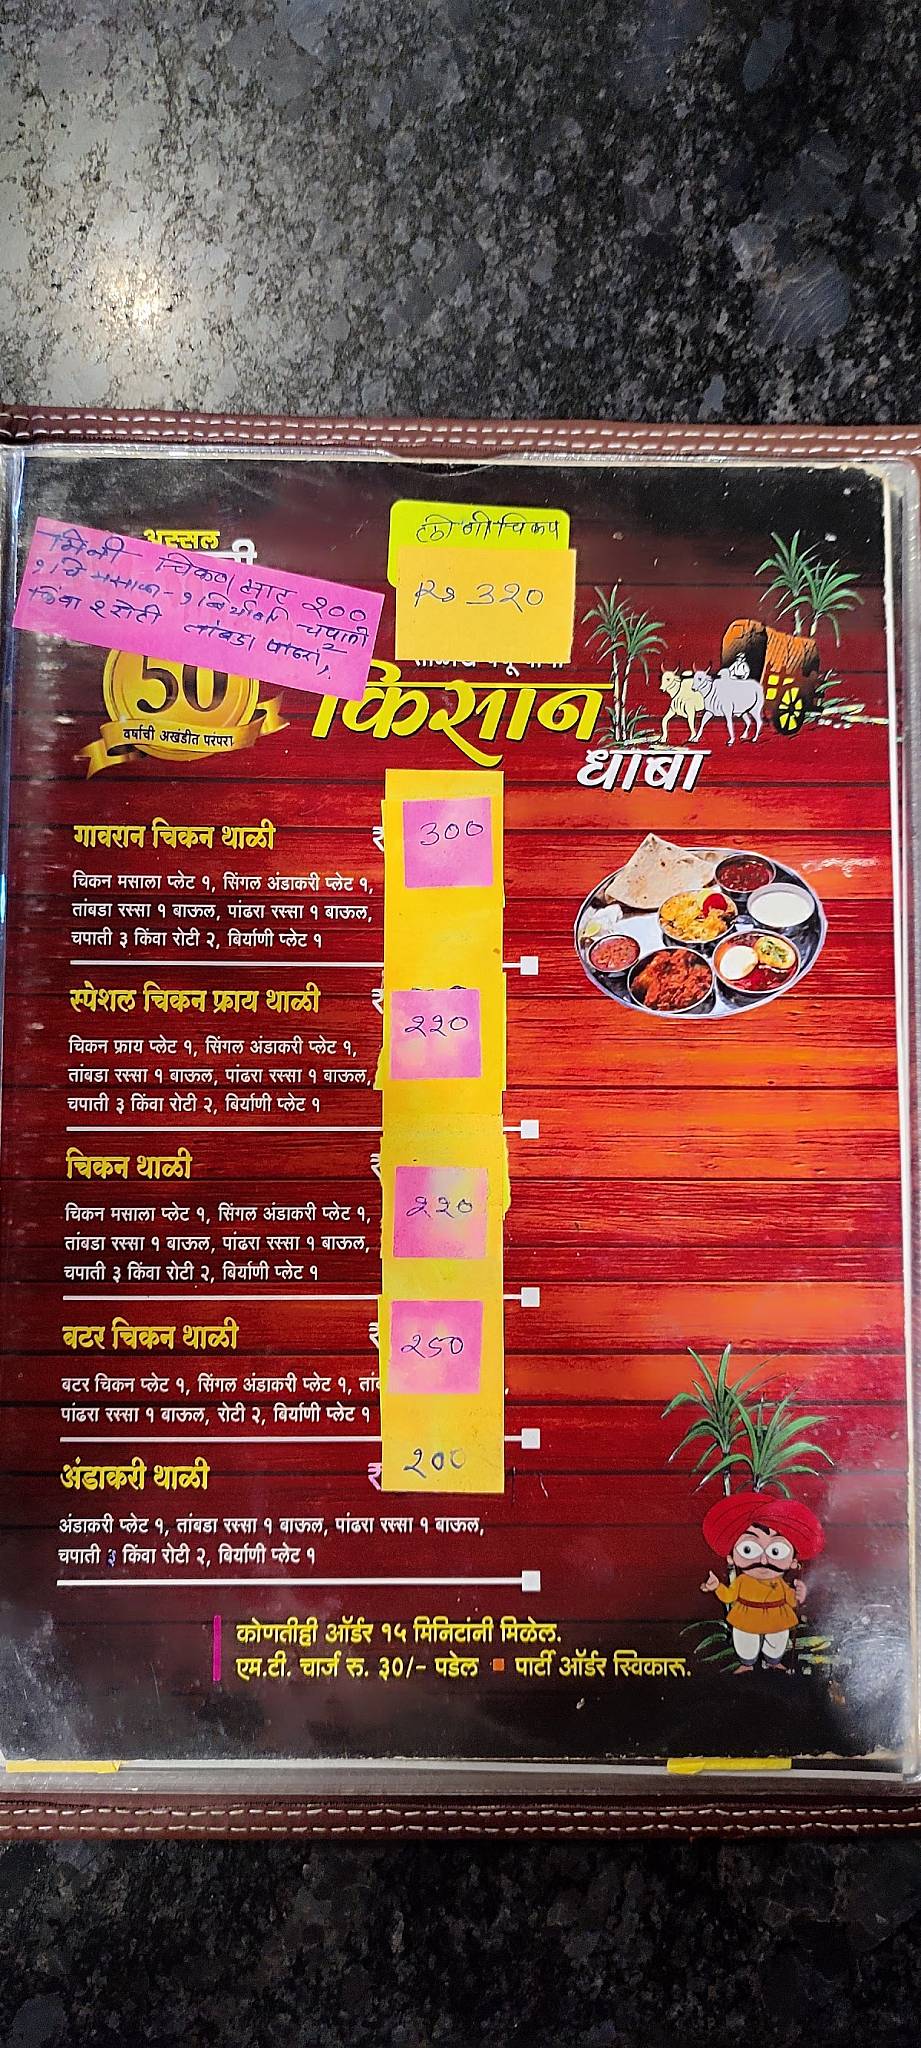 अस्सल
मिनी चिकन भात २००
१ चि मसाला - १ बिर्यानी चपाती २
किंवा २ रोटी तांबडा पांढरा
चिकन
Rs ३२०
50
वर्षाची अखंडीत परंपरा
किसान
धाबा
गावरान चिकन थाळी
३००
चिकन मसाला प्लेट १, सिंगल अंडाकरी प्लेट १,
तांबडा रस्सा १ बाऊल, पांढरा रस्सा १ बाऊल,
चपाती ३ किंवा रोटी २, बिर्याणी प्लेट १
स्पेशल चिकन फ्राय थाळी
२२०
चिकन फ्राय प्लेट १, सिंगल अंडाकरी प्लेट १,
तांबडा रस्सा १ बाऊल, पांढरा रस्सा १ बाऊल,
चपाती ३ किंवा रोटी २, बिर्याणी प्लेट १
चिकन थाळी
२२०
चिकन मसाला प्लेट १, सिंगल अंडाकरी प्लेट १,
तांबडा रस्सा १ बाऊल, पांढरा रस्सा १ बाऊल,
चपाती ३ किंवा रोटी २, बिर्याणी प्लेट १
बटर चिकन थाळी
२५०
बटर चिकन प्लेट १, सिंगल अंडाकरी प्लेट १,
पांढरा रस्सा १ बाऊल, रोटी २, बिर्याणी प्लेट १
अंडाकरी थाळी
२००
अंडाकरी प्लेट १, तांबडा रस्सा १ बाऊल, पांढरा रस्सा १ बाऊल,
चपाती ३ किंवा रोटी २, बिर्याणी प्लेट १
कोणतीही ऑर्डर १५ मिनिटांनी मिळेल.
एम.टी. चार्ज रु. ३०/- पडेल ▪ पार्टी ऑर्डर स्विकारू.